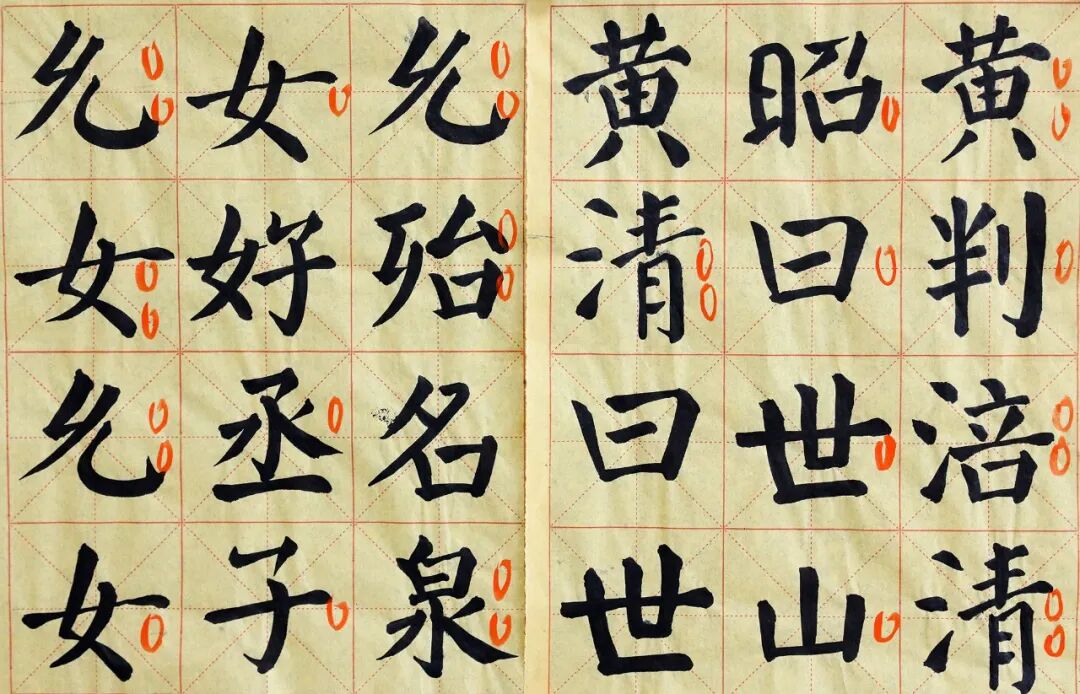 黄判涪清
昭曰世山
黄清曰世
殆名泉
女好丞子
女女